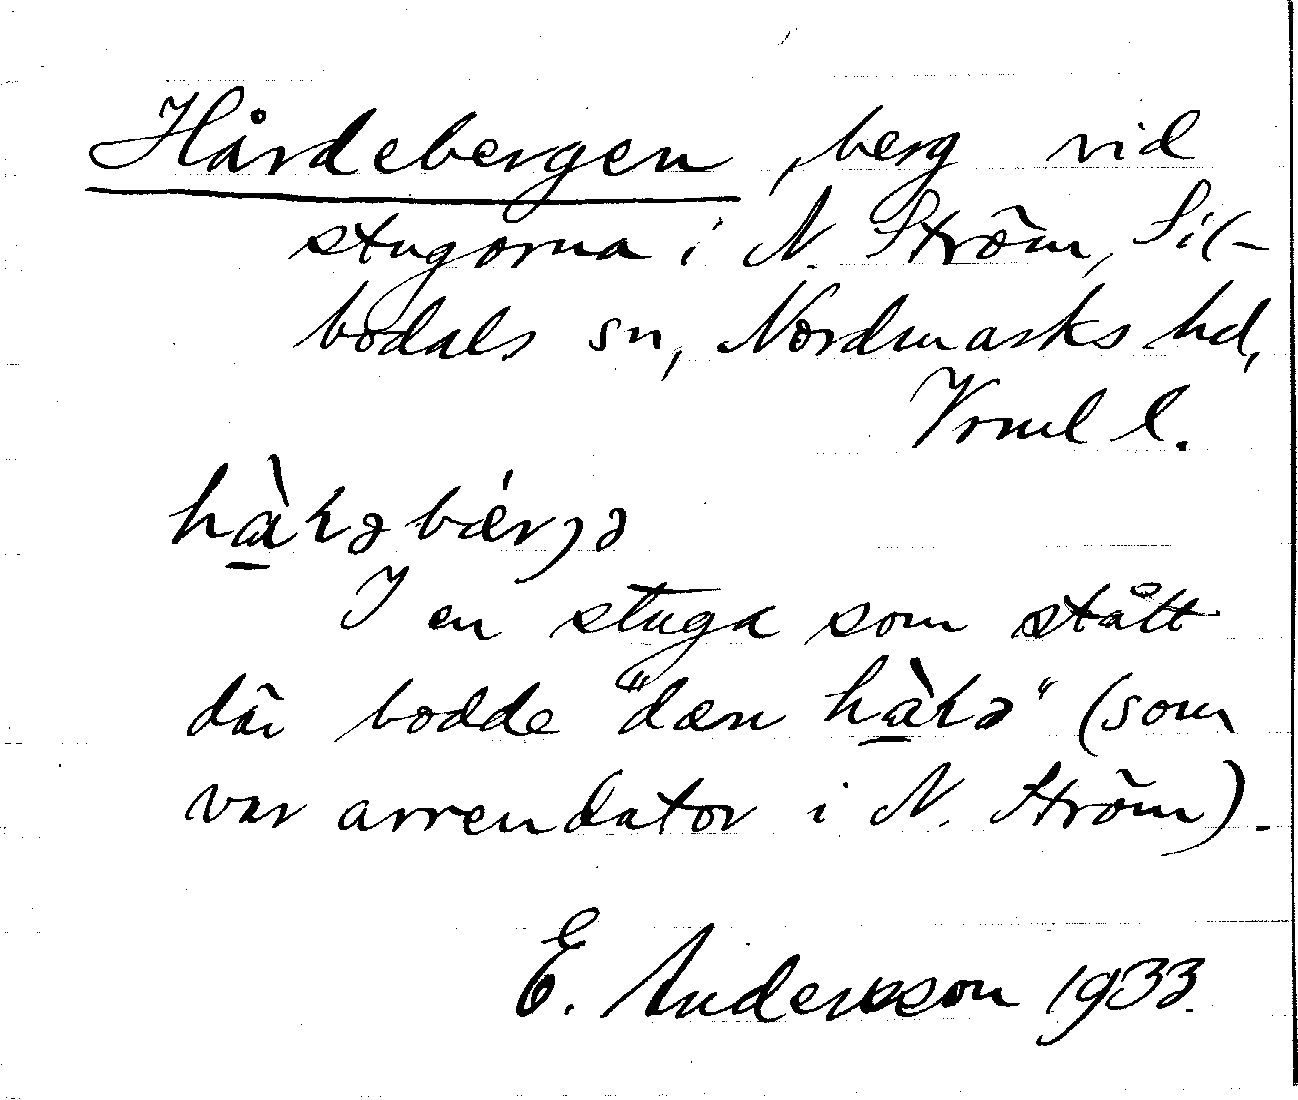 Hårdebergen, berg vid
stugorna i N. Ström, Sil-
bodals sn, Nordmarks hd,
Vrml l.
I en stuga som stått
där bodde "dæn" (som
var arrendator i N. Ström).
E. Andersson 1933.